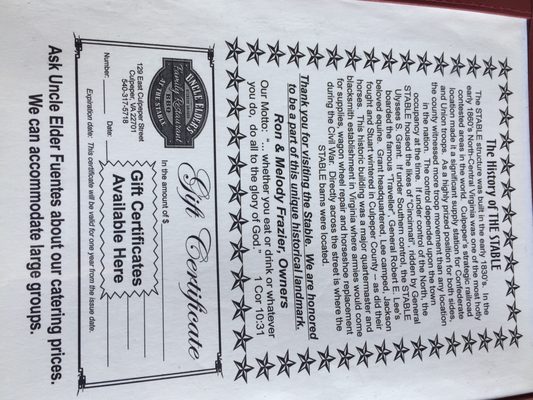 The History OF THE STABLE
The STABLE structure was built in the early 1830's. In the
early 1860's North-Central Virginia was one of the most hotly
contested areas in the world. Culpeper's strategic railroad
location made it a significant supply station for Confederate
and Union troops. As a highly prized position for both sides,
the county witnessed more troop movement than any location
in the nation. The control depended upon the town
occupancy at the time. If under control of the North, the
STABLE housed the likes of "Cincinnati", ridden by General
Ulysses S. Grant. If under Southern control, the STABLE
boarded the famous "Traveller", General Robert E. Lee's
beloved equine. Grant headquartered, Lee camped, Jackson
fought and Stuart wintered in Culpeper County – as did their
horses. This historic building was a major quartermaster and
blacksmith establishment in Virginia where armies would come
for supplies, wagon wheel repair and horseshoe replacement
during the Civil War. Directly across the street is where the
STABLE barns were located.
Thank you for visiting the stable. We are honored
to be a part of this unique historical landmark.
Ron & Melody Frazier, Owners
Our Motto: "... whether you eat or drink or whatever
you do, do all to the glory of God." 1 Cor 10:31
Gift Certificate
UNCLE ELDER'S
Family Restaurant
AT THE STABLE
In the amount of $
129 East Culpeper Street
Culpeper, VA 22701
540-317-5718
Gift Certificates
Available Here
Number: Date
Expiration date: This certificate will be valid for one year from the issue date.
Ask Uncle Elder Fuentes about our catering prices.
We can accommodate large groups.